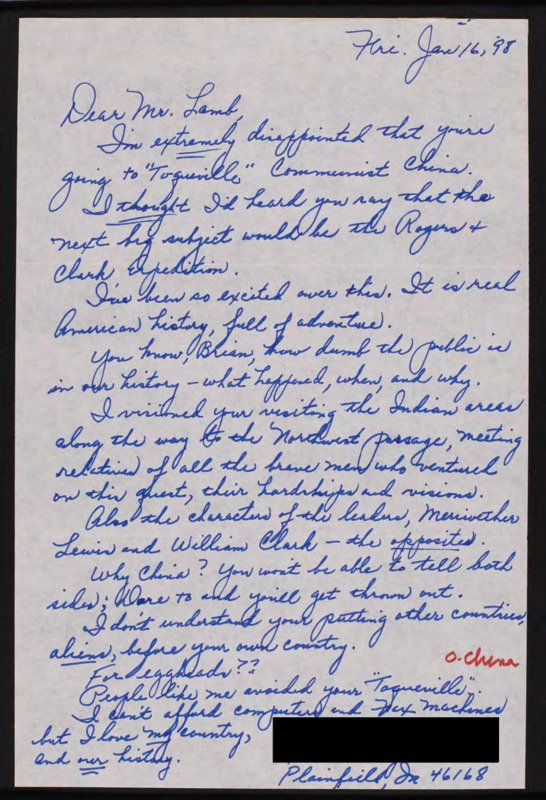 Fri. Jan 16, '98
Dear Mr. Lamb,
I'm extremely disappointed that you're
going to "Toqueville" Communist China.
I thought I'd heard you say that the
next big subject would be the Rogers +
Clark Expedition.
I've been so excited over this. It is real
American history, full of adventure.
You know, Brian, how dumb the public is
in our history – what happened, when, and why.
I visioned your visiting the Indian areas
along the way to the Northwest passage, meeting
relatives of all the brave men who ventured
on this quest, their hardships and visions.
Also the characters of the leaders, Meriwether
Lewis and William Clark – the opposites.
Why China? You wont be able to tell both
sides; Dare to and you'll get thrown out.
I don't understand your putting other countries,
aliens, before your own country.
O-China
For eggheads??
People like me avoided your "Toqueville".
I can't afford computers and Fax Machines
but I love my country,
and our history.
Plainfield, In 46168